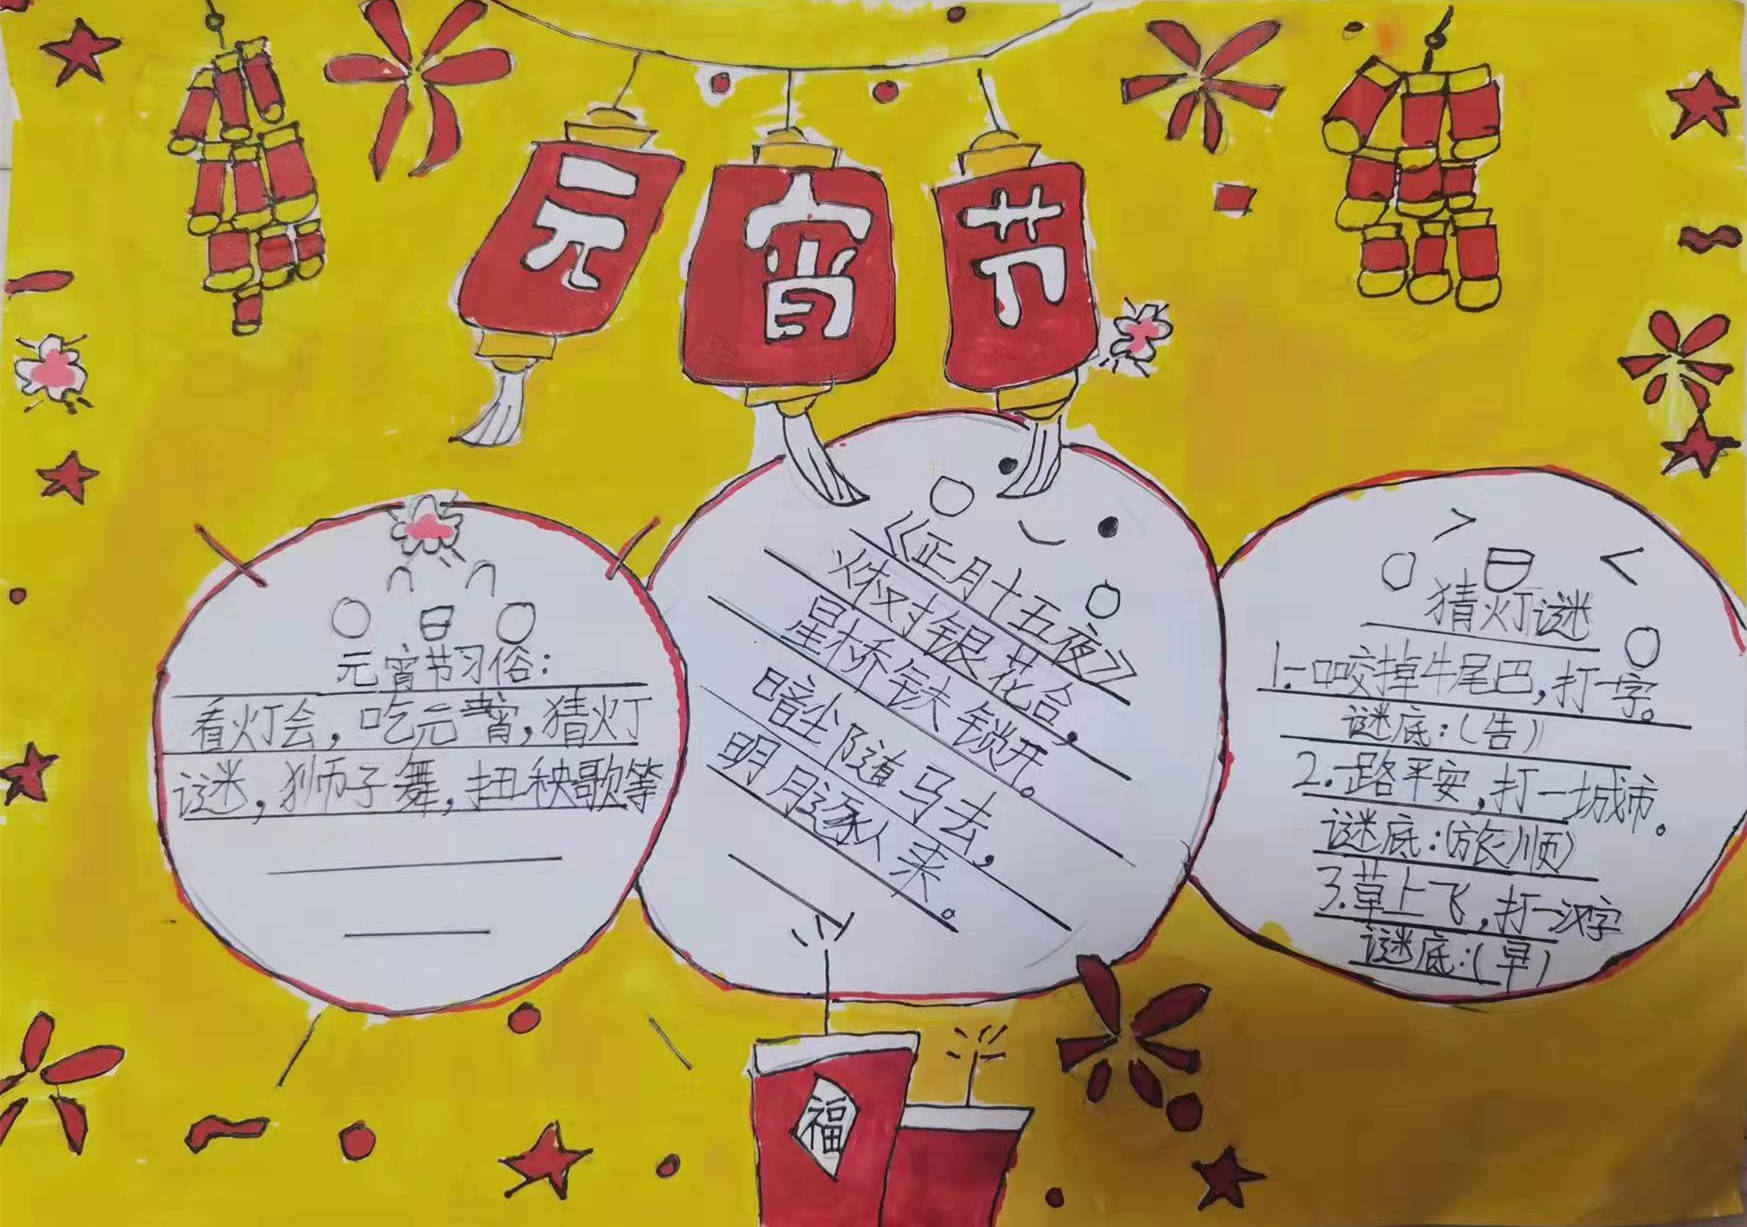 元宵节
元宵节习俗：
看灯会，吃元宵，猜灯
谜，狮子舞，扭秧歌等
《正月十五夜》
火树银花合，
星桥铁锁开。
暗尘随马去，
明月逐人来。
猜灯谜
1.一口咬掉牛尾巴，打一字。
谜底：（告）
2.一路平安，打一城市。
谜底：（旅顺）
3.草上飞，打一汉字
谜底：（早）
福